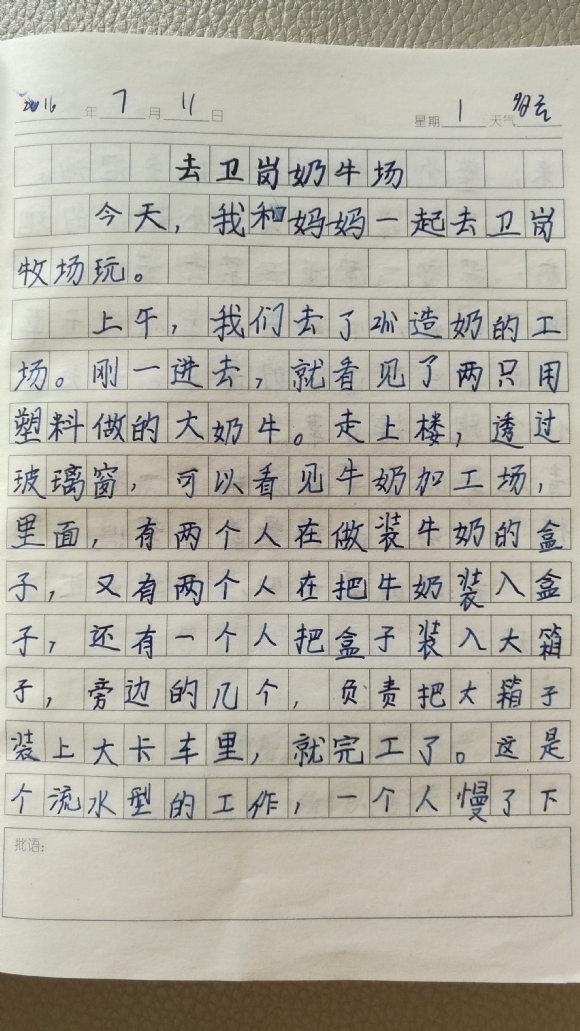 2016年7月11日 星期1 天气多云
去卫岗奶牛场
今天，我和妈妈一起去卫岗
牧场玩。
上午，我们去了造奶的工
场。刚一进去，就看见了两只用
塑料做的大奶牛。走上楼，透过
玻璃窗，可以看见牛奶加工场，
里面，有两个人在做装牛奶的盒
子，又有两个人在把牛奶装入盒
子，还有一个人把盒子装入大箱
子，旁边的几个，负责把大箱子
装上大卡车里，就完工了。这是
个流水型的工作，一个人慢了下
批语：